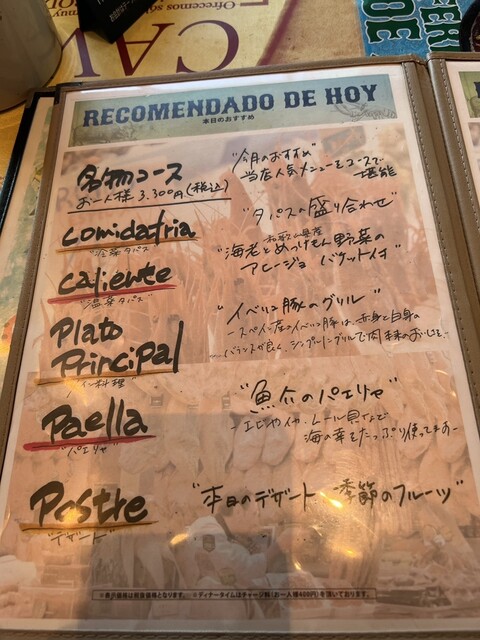 Ofrecemos so
CAV
RECOMENDADO DE HOY
本日のおすすめ
名物コース
お一人様 3.300円(税込)
"今月のおすすめ"
当店人気メニューをコースで
堪能
comidafria
"冷菜タパス"
"タパスの盛り合わせ"
caliente
"温菜タパス"
和歌山県産
"海老とめっけもん野菜の
アヒージョ バケット付"
Plato
Principal
メイン料理"
"イベリコ豚のグリル"
-スペイン産のイベリコ豚は、赤身と白身の
バランスが良く、シンプルにグリルで肉本来のおいしさを-
Paella
"パエリャ"
"魚介のパエリャ"
-エビやイカ、ムール貝などで
海の幸をたっぷり使ってます-
Postre
"デザート"
"本日のデザート 季節のフルーツ"
※表示価格は税金価格となります。 ※ディナータイムはチャージ料(お一人様400円)を頂いております。